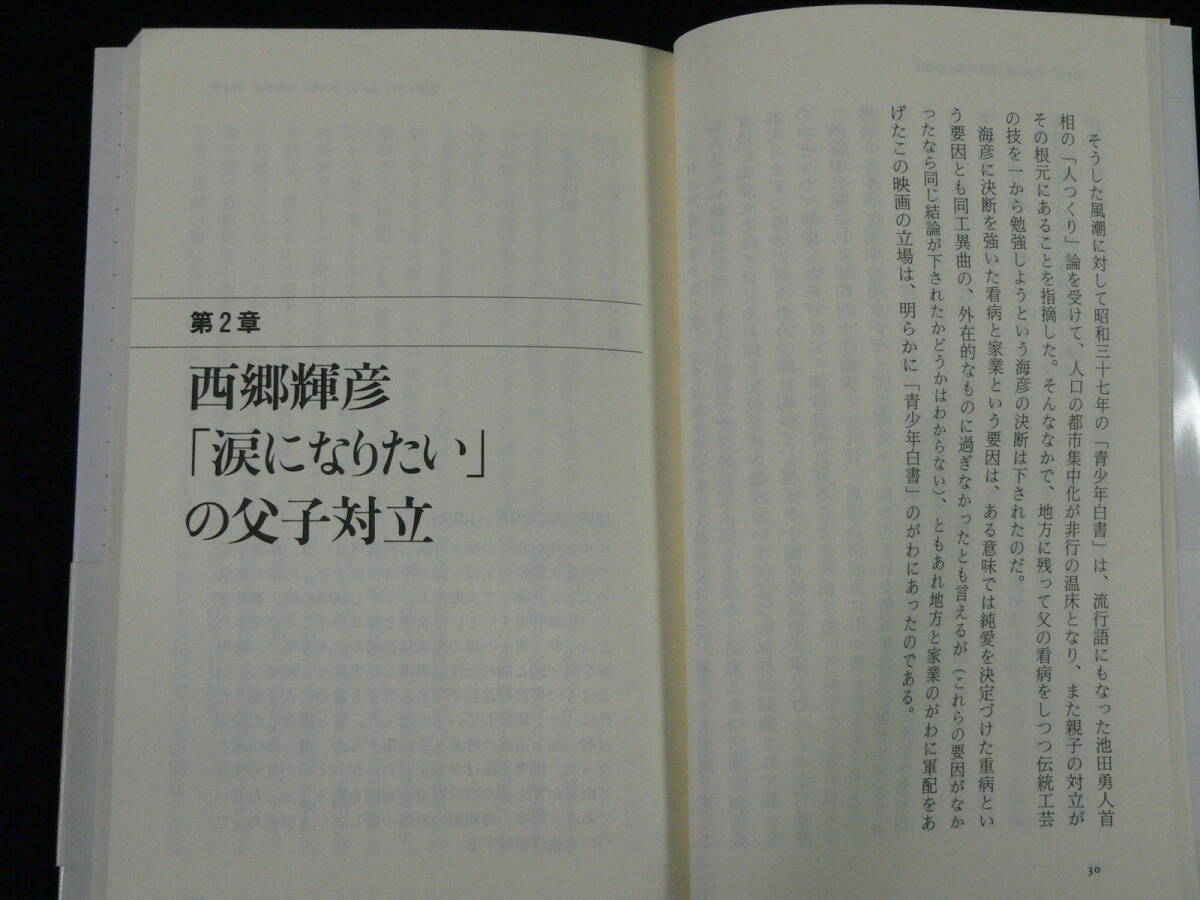 そうした風潮に対して昭和三十七年の「青少年白書」は、流行語にもなった池田勇人首
相の「人つくり」論を受けて、人口の都市集中化が非行の温床となり、また親子の対立が
その根元にあることを指摘した。そんななかで、地方に残って父の看病をしつつ伝統工芸
の技を一から勉強しようという海彦の決断は下されたのだ。
海彦に決断を強いた看病と家業という要因は、ある意味では純愛を決定づけた重病とい
う要因とも同工異曲の、外在的なものに過ぎなかったとも言えるが（これらの要因がなか
ったなら同じ結論が下されたかどうかはわからない）、ともあれ地方と家業のがわに軍配をあ
げたこの映画の立場は、明らかに「青少年白書」のがわにあったのである。
30
第2章
西郷輝彦
「涙になりたい」
の父子対立